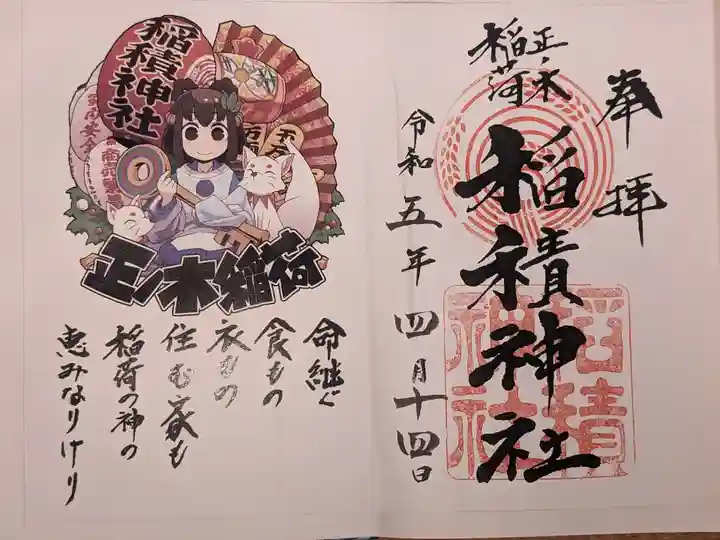 奉拝
正ノ木
稲荷
稲積神社
令和五年四月十四日
稲積
神社
稲積神社
商売繁
正ノ木稲荷
命継ぐ
食もの
衣もの
住む家も
稲荷の神の
恵みなりけり